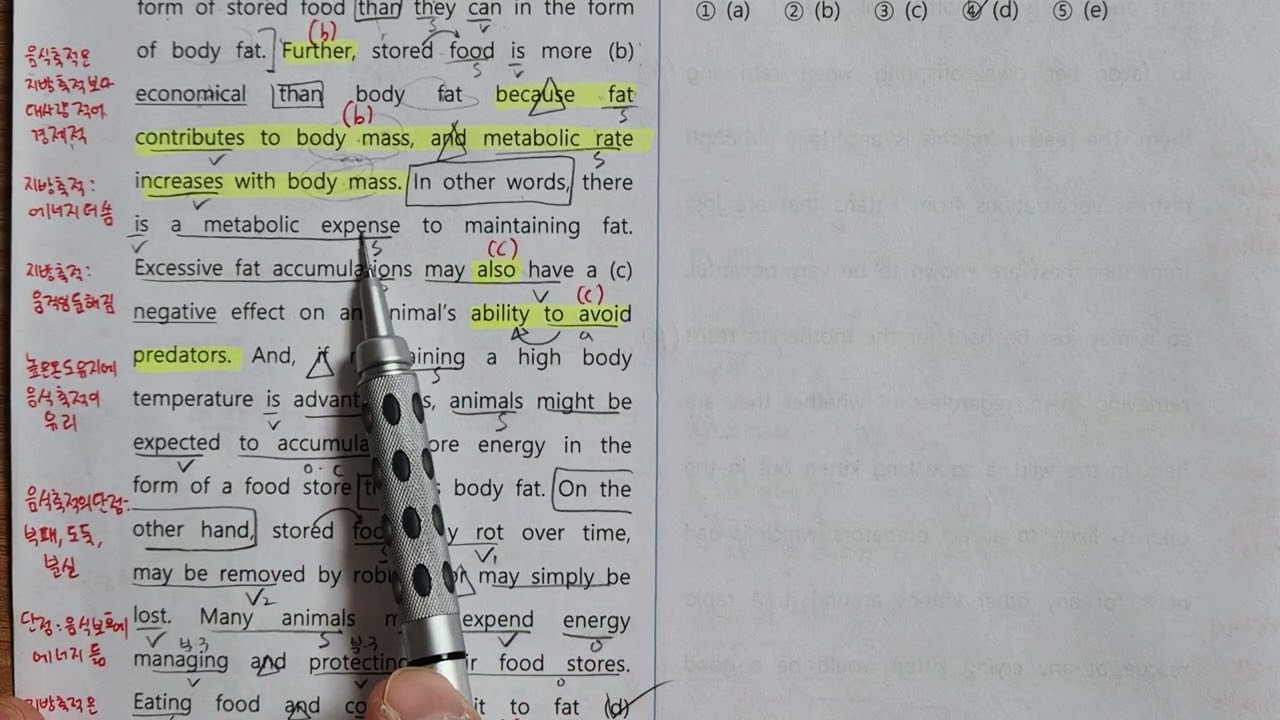 form of stored food than they can in the form
of body fat. Further, stored food is more (b)
economical than body fat because fat
contributes to body mass, and metabolic rate
increases with body mass. In other words, there
is a metabolic expense to maintaining fat.
Excessive fat accumulations may also have a (c)
negative effect on an animal's ability to avoid
predators. And, if a high body
temperature is animals might be
expected to energy in the
form of a food store body fat. On the
other hand, stored rot over time,
may be removed by may simply be
lost. Many animals expend energy
managing and food stores.
Eating food and it to fat (d)
(b)
(b)
(c)
(c)
S V
S V
S
V S
V
V S
S
V
a
S
V S
V O·C
S V1
V2
V S V O
부·3 부·3
V V O
음식축적은
지방축적보다
대사량 적어
경제적
지방축적:
에너지 더 씀
지방축적:
움직임 둔해짐
높은 온도 유지에
음식축적이
유리
음식축적의 단점:
부패, 도둑,
분실
단점: 음식 보호에
에너지 듦
지방축적은
① (a) ② (b) ③ (c) ④ (d) ⑤ (e)